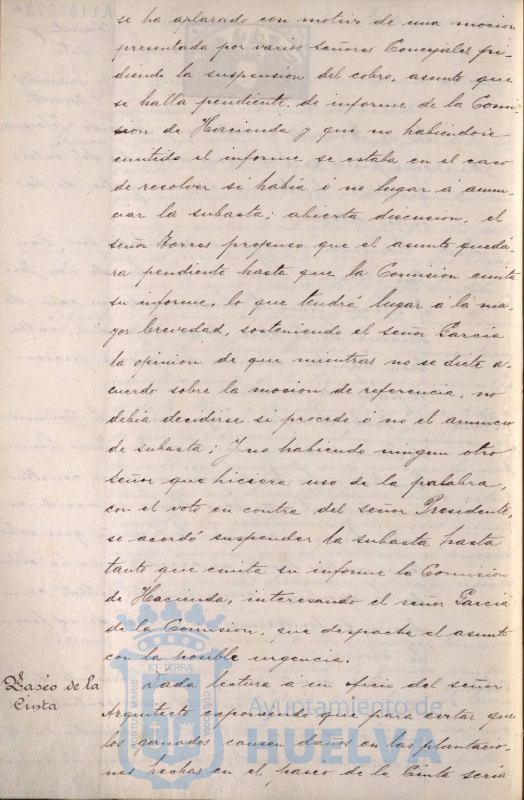 se ha aplazado con motivo de una mocion
presentada por varios señores Concejales pi-
diendo la suspension del cobro, asunto que
se halla pendiente de informe de la Comi-
sion de Hacienda y que no habiendose
emitido el informe se estaba en el caso
de resolver si había ó no lugar á anun-
ciar la subasta; abierta discusion, el
señor Torres propuso que el asunto quedá-
ra pendiente hasta que la Comision emita
su informe, lo que tendrá lugar á la ma-
yor brevedad, sosteniendo el señor Garcia
la opinion de que mientras no se dicte a-
cuerdo sobre la mocion de referencia, no
debia decidirse si procede ó no el anuncio
de subasta; Y no habiendo ningun otro
señor que hiciera uso de la palabra,
con el voto en contra del señor Presidente,
se acordó suspender la subasta hasta
tanto que emita su informe la Comision
de Hacienda, interesando el señor Garcia
de la Comision, que despache el asunto
con la posible urgencia.
Paseo de la
Cinta
Dada lectura á un oficio del señor
Arquitecto exponiendo que para evitar que
los ganados causen daños en las plantacio-
nes hechas en el paseo de la Cinta seria
Ayuntamiento de
HUELVA